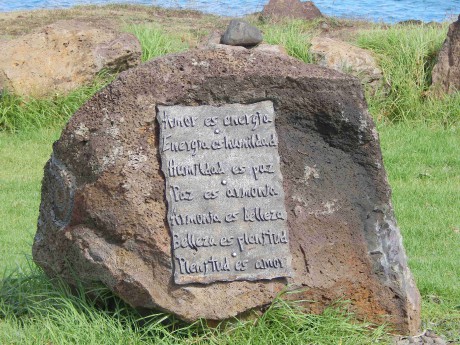 Amor es energía
Energía es humildad
Humildad es paz
Paz es armonía
Armonía es belleza
Belleza es plenitud
Plenitud es amor